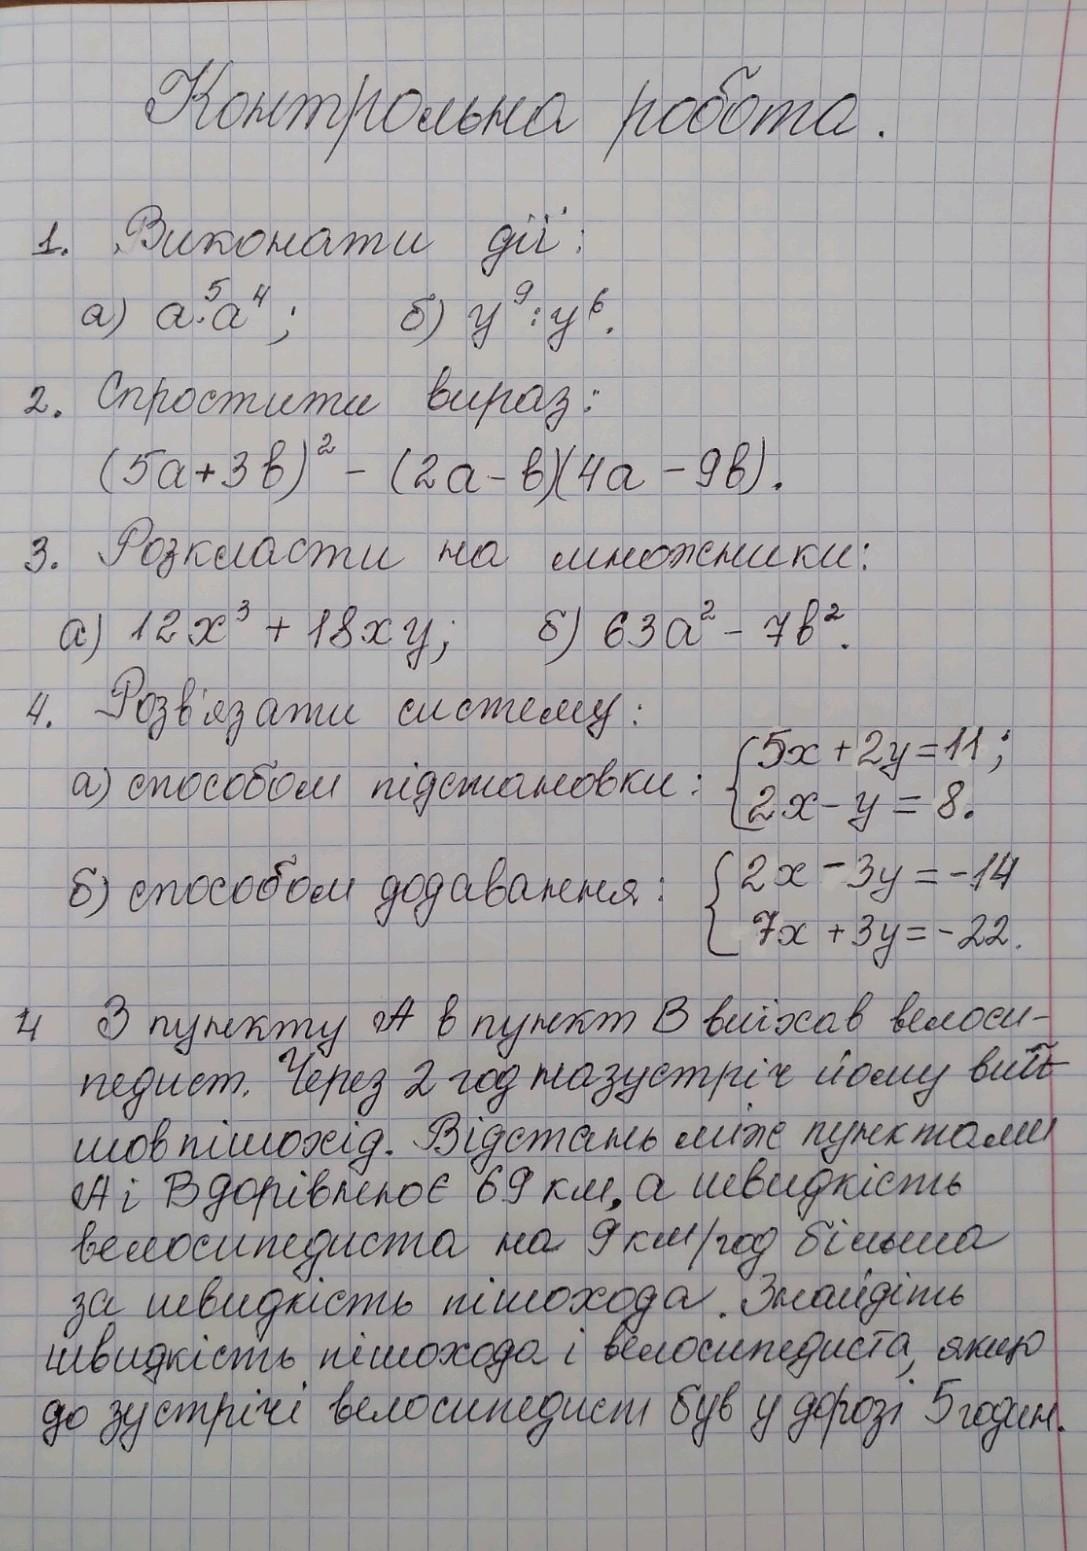 Контрольна робота.
1. Виконати дії:
а) a⁵·a⁴; б) y⁹:y⁶.
2. Спростити вираз:
(5a+3b)² - (2a-b)(4a-9b).
3. Розкласти на множники:
а) 12x³ + 18xy; б) 63a² - 7b².
4. Розв'язати систему:
а) способом підстановки: {5x+2y=11;
2x-y=8.
б) способом додавання: {2x-3y=-14
7x+3y=-22.
4 З пункту А в пункт В виїхав велоси-
педист. Через 2 год назустріч йому вий-
шов пішохід. Відстань між пунктами
А і В дорівнює 69 км, а швидкість
велосипедиста на 9 км/год більша
за швидкість пішохода. Знайдіть
швидкість пішохода і велосипедиста, якщо
до зустрічі велосипедист був у дорозі 5 годин.